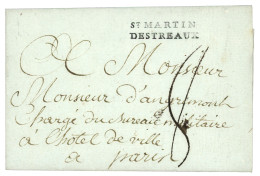 ST MARTIN
DESTREAUX
A Monsieur
Monsieur
Chargé du bureau militaire
à l'hotel de ville
a paris